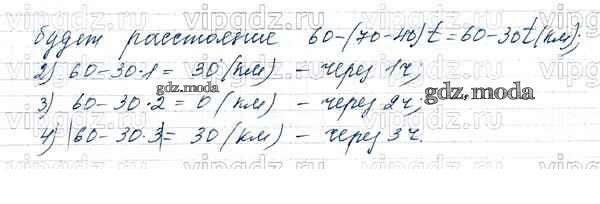 vipgdz.ru vipgdz.ru vipgdz.ru vipgdz.ru
будет расстояние 60-(70-40)t=60-30t(км);
2) 60-30·1= 30 (км) - через 1ч;
gdz.moda
gdz.moda
3) 60-30·2=0 (км) - через 2ч;
4) |60-30·3|= 30 (км) - через 3ч.
vipgdz.ru vipgdz.ru vipgdz.ru vipgdz.ru